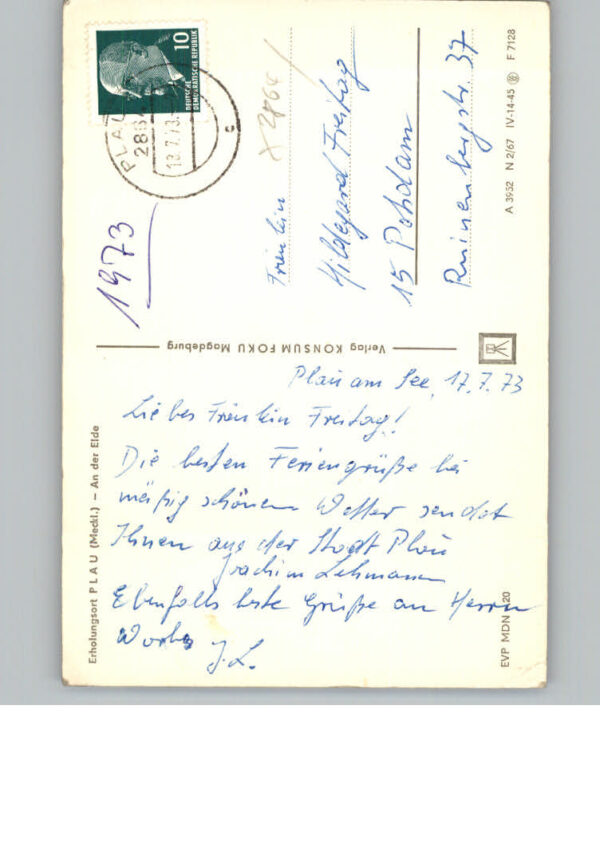 Plau am See, 17.7.73
Liebes Fräulein Freitag!
Die besten Feriengrüße bei
mäßig schönem Wetter sendet
Ihnen aus der Stadt Plau
Joachim Lehmann
Ebenfalls beste Grüße an Herrn
J.L.
Fräulein
Hildegard Freitag
15 Potsdam
Ruinenbergstr 37
1973
10
DEUTSCHE
DEMOKRATISCHE REPUBLIK
PLAU
286
18.7.73
c
Verlag KONSUM FOKU Magdeburg
Erholungsort PLAU (Meckl.) – An der Elde
A 3952 N 2/67 IV-14-45 F 7128
EVP MDN 20